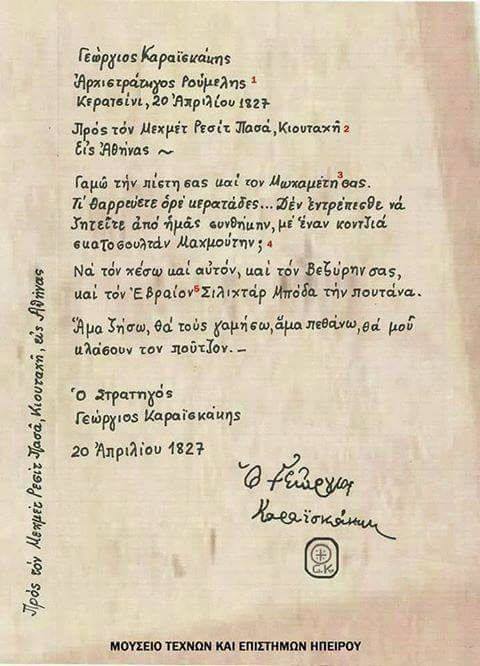 Γεώργιος Καραϊσκάκης
Ἀρχιστράτηγος Ρούμελης 1
Κερατσίνι, 20 Ἀπριλίου 1827
Πρός τόν Μεχμέτ Ρεσίτ Πασά, Κιουταχῆ 2
Εἰς Ἀθήνας ~
Γαμῶ τήν πίστη σας καί τον Μωχαμέτη 3 σας.
Τί θαρρεύετε ὀρέ κερατάδες... Δέν ἐντρέπεσθε νά
ζητεῖτε ἀπό ἡμᾶς συνθήκην, μέ ἕναν κοντζιά
σκατοσουλτάν Μαχμούτην; 4
Νά τόν χέσω καί αὐτόν, καί τόν Βεζύρην σας,
καί τόν Ἑβραίον 5 Σιλιχτάρ Μπόδα τήν πουτάνα.
Ἅμα ζήσω, θά τούς γαμήσω, ἅμα πεθάνω, θά μοῦ
κλάσουν τον ποῦτζον. —
Ὁ Στρατηγός
Γεώργιος Καραϊσκάκης
20 Ἀπριλίου 1827
Ὁ Γεώργιος
Καραϊσκάκης
Γ.Κ.
Πρός τόν Μεχμέτ Ρεσίτ Πασά, Κιουταχῆ, εἰς Ἀθήνας
ΜΟΥΣΕΙΟ ΤΕΧΝΩΝ ΚΑΙ ΕΠΙΣΤΗΜΩΝ ΗΠΕΙΡΟΥ